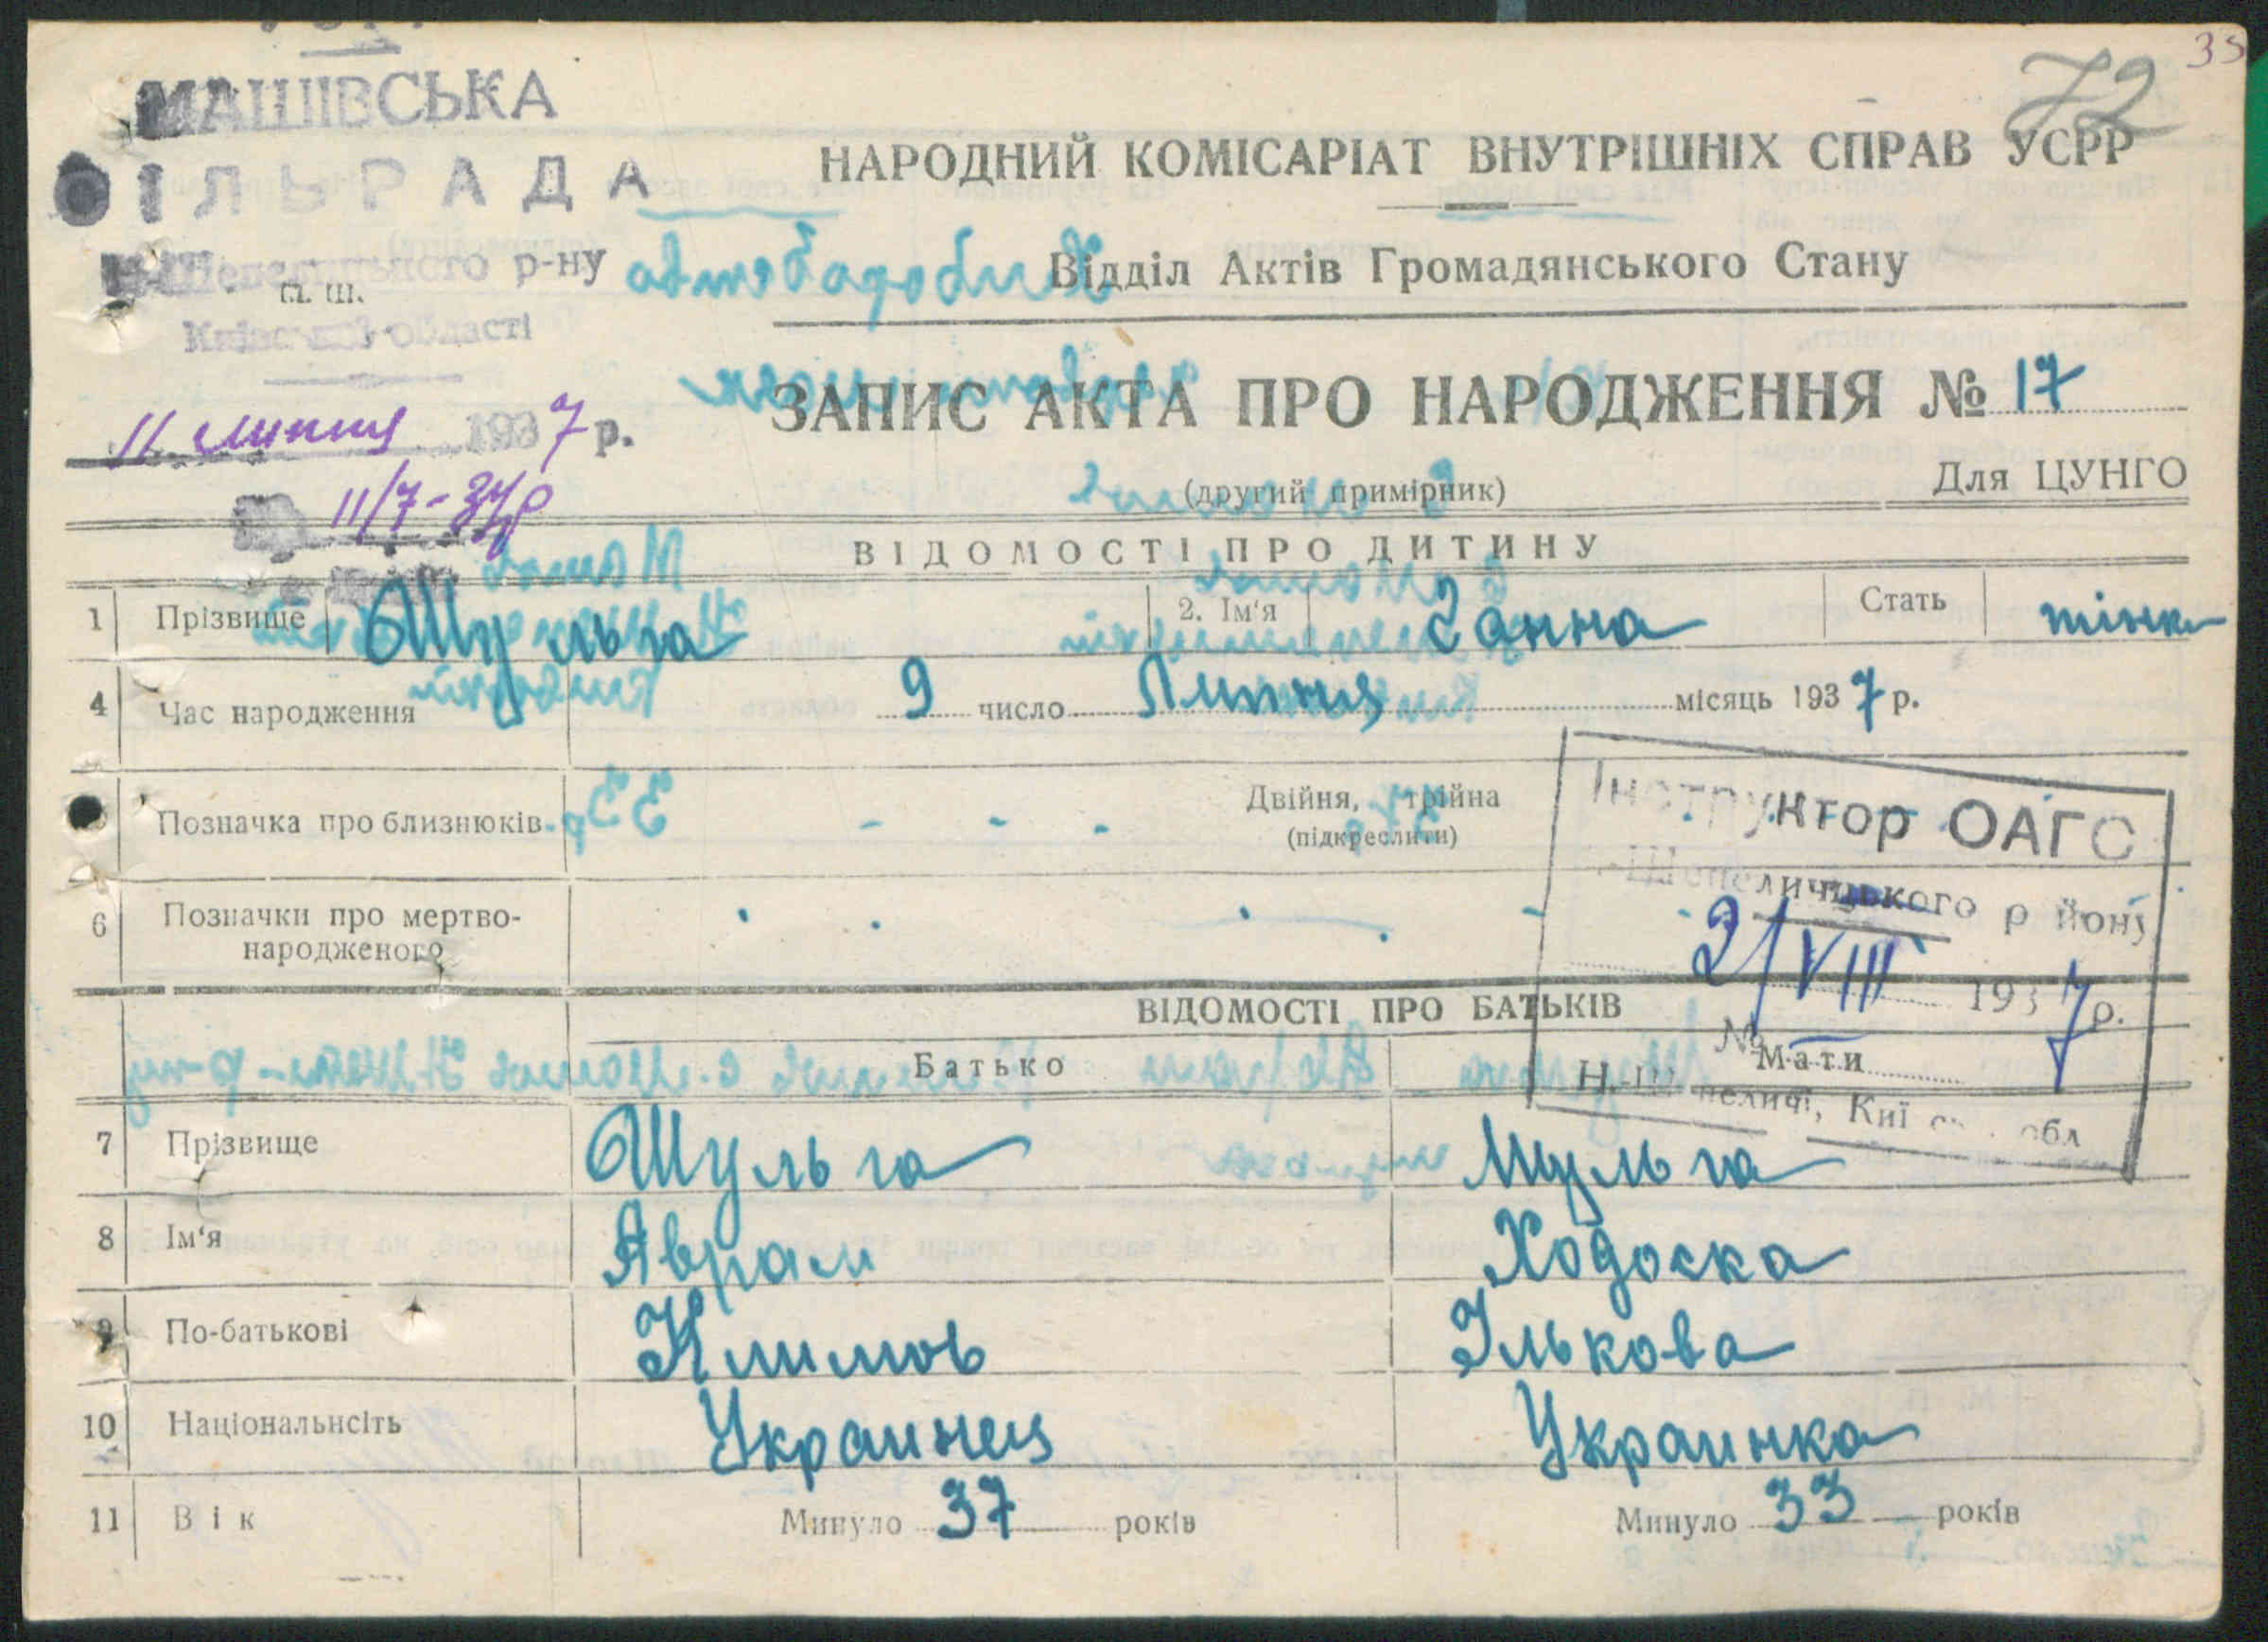 35
72
МАШІВСЬКА
СІЛЬРАДА
р-ну
Київської області
11 липня 1937 р.
11/7-37р
НАРОДНИЙ КОМІСАРІАТ ВНУТРІШНІХ СПРАВ УСРР
Відділ Актів Громадянського Стану
ЗАПИС АКТА ПРО НАРОДЖЕННЯ № 17
(другий примірник)
Для ЦУНГО
ВІДОМОСТІ ПРО ДИТИНУ
1 Прізвище Шульга 2. Ім'я Ганна Стать жінк
4 Час народження 9 число Липня місяць 1937 р.
Позначка про близнюків - - - Двійня, трійна
(підкреслити)
6 Позначки про мертво-
народженого
Інструктор ОАГС
району
2/VIII 1937 р.
№
ВІДОМОСТІ ПРО БАТЬКІВ
Батько Мати
7 Прізвище Шульга Шульга
8 Ім'я Аврам Ходоска
9 По-батькові Климов Ількова
10 Національнсіть Украинец Украинка
11 Вік Минуло 37 років Минуло 33 років